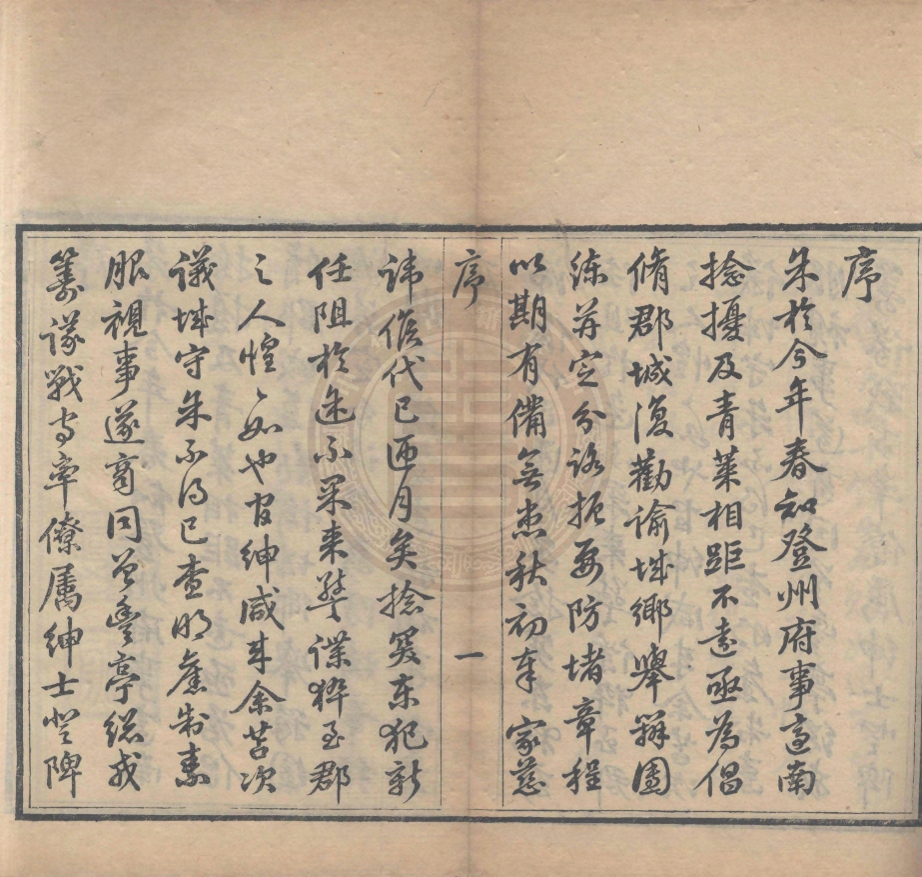 序
朱於今年春知登州府事適南
捻擾及青萊相距不遠亟為倡
脩郡城復勸諭城鄉舉辦團
練并定分路扼要防堵章程
以期有備無患秋初奉 家慈
序 一
諱俟代已匝月矣捻匪東犯新
任阻於途不果來警諜猝至郡
之人惶惶如也官紳咸來余苫次
議城守朱不得已查明舊制素
服視事遂商同曾豐亭總戎
籌議戰守率僚屬紳士登陴